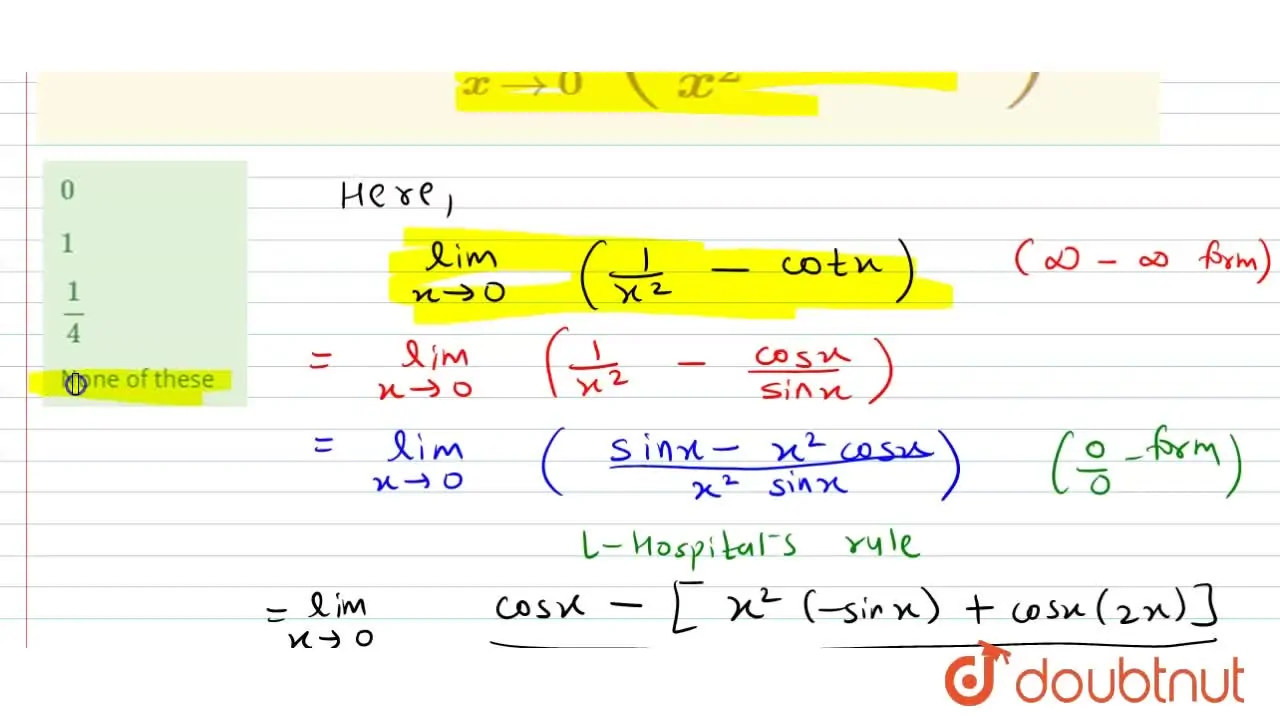 x → 0 ( x² )
0
1
1/4
None of these
Here,
lim x→0 (1/x² - cotx) (∞ - ∞ form)
= lim x→0 (1/x² - cosx/sinx)
= lim x→0 (sinx - x² cosx / x² sinx) (0/0 - form)
L-Hospital's rule
= lim x→0 cosx - [x² (-sinx) + cosx (2x)]
doubtnut